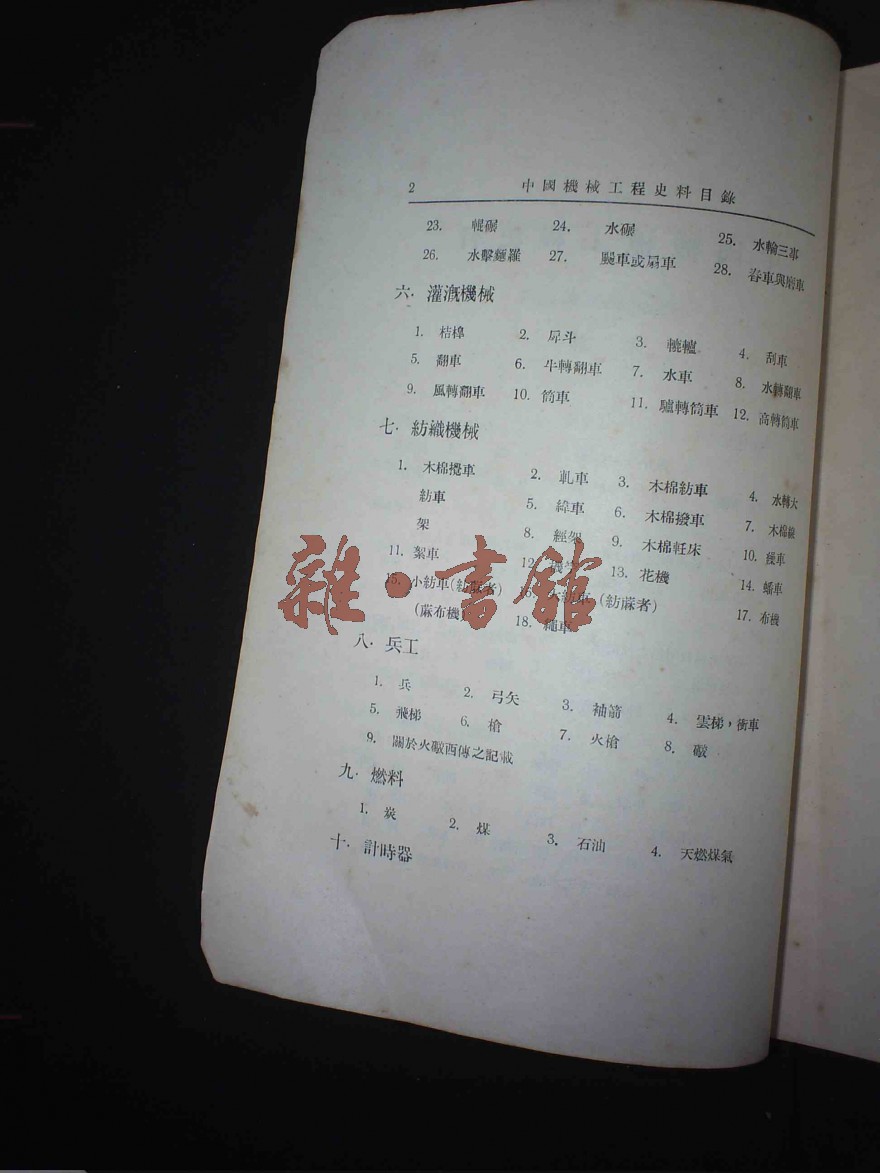 2 中國機械工程史料目錄
23. 輥碾 24. 水碾 25. 水輪三事
26. 水擊麵羅 27. 颺車或扇車 28. 舂車與磨車
六. 灌溉機械
1. 桔槔 2. 戽斗 3. 轆轤 4. 刮車
5. 翻車 6. 牛轉翻車 7. 水車 8. 水轉翻車
9. 風轉翻車 10. 筒車 11. 驢轉筒車 12. 高轉筒車
七. 紡織機械
1. 木棉攪車 2. 軋車 3. 木棉紡車 4. 水轉大
紡車 5. 緯車 6. 木棉撥車 7. 木棉線
架 8. 經架 9. 木棉軠床 10. 繅車
11. 絮車 12. 13. 花機 14. 蟠車
15. 小紡車(紡蔴者) 16. 紡車(紡蔴者) 17. 布機
(蔴布機) 18. 繩車
八. 兵工
1. 兵 2. 弓矢 3. 袖箭 4. 雲梯,衝車
5. 飛梯 6. 槍 7. 火槍 8. 礮
9. 關於火礮西傳之記載
九. 燃料
1. 炭 2. 煤 3. 石油 4. 天燃煤氣
十. 計時器
雜·書館